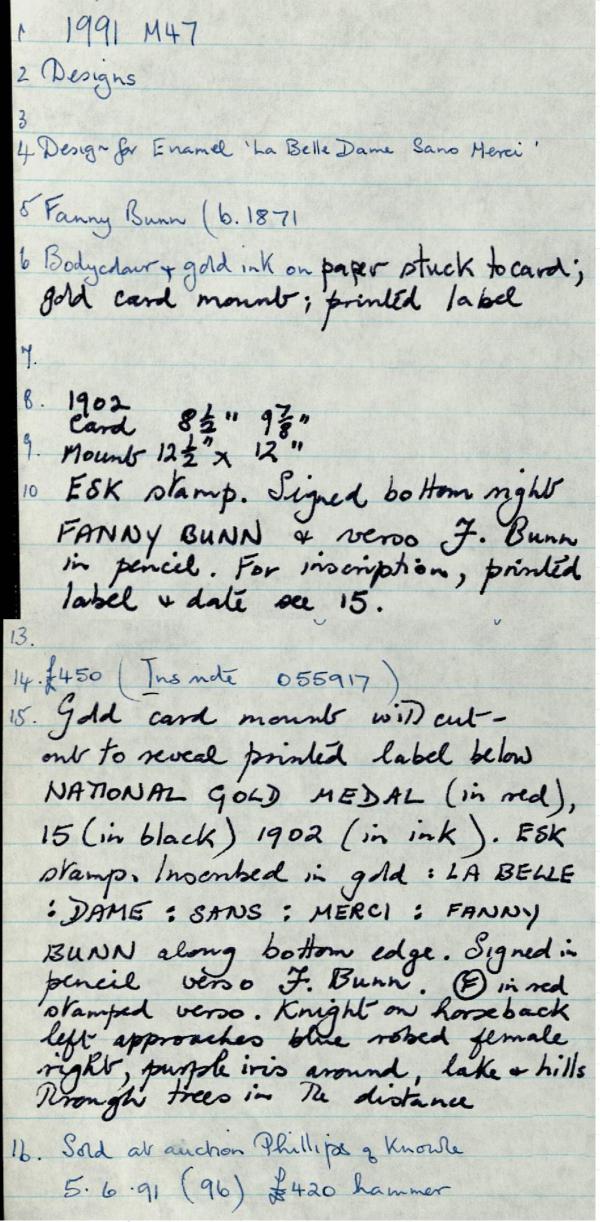 1 1991 M47
2 Designs
3
4 Design for Enamel 'La Belle Dame Sans Merci'
5 Fanny Bunn (b.1871
6 Bodycolour & gold ink on paper stuck to card;
gold card mount; printed label
7.
8. 1902
Card 8½" 9⅞"
9. Mount 12½" x 12"
10 ESK stamp. Signed bottom right
FANNY BUNN & verso F. Bunn
in pencil. For inscription, printed
label & date see 15.
13.
14. £450 (Ins note 055917)
15. Gold card mount with cut-
out to reveal printed label below
NATIONAL GOLD MEDAL (in red),
15 (in black) 1902 (in ink). ESK
stamp. Inscribed in gold : LA BELLE
: DAME : SANS : MERCI : FANNY
BUNN along bottom edge. Signed in
pencil verso F. Bunn. Ⓔ in red
stamped verso. Knight on horseback
left approaches blue robed female
right, purple iris around, lake & hills
through trees in the distance
16. Sold at auction Phillips of Knowle
5.6.91 (96) £420 hammer